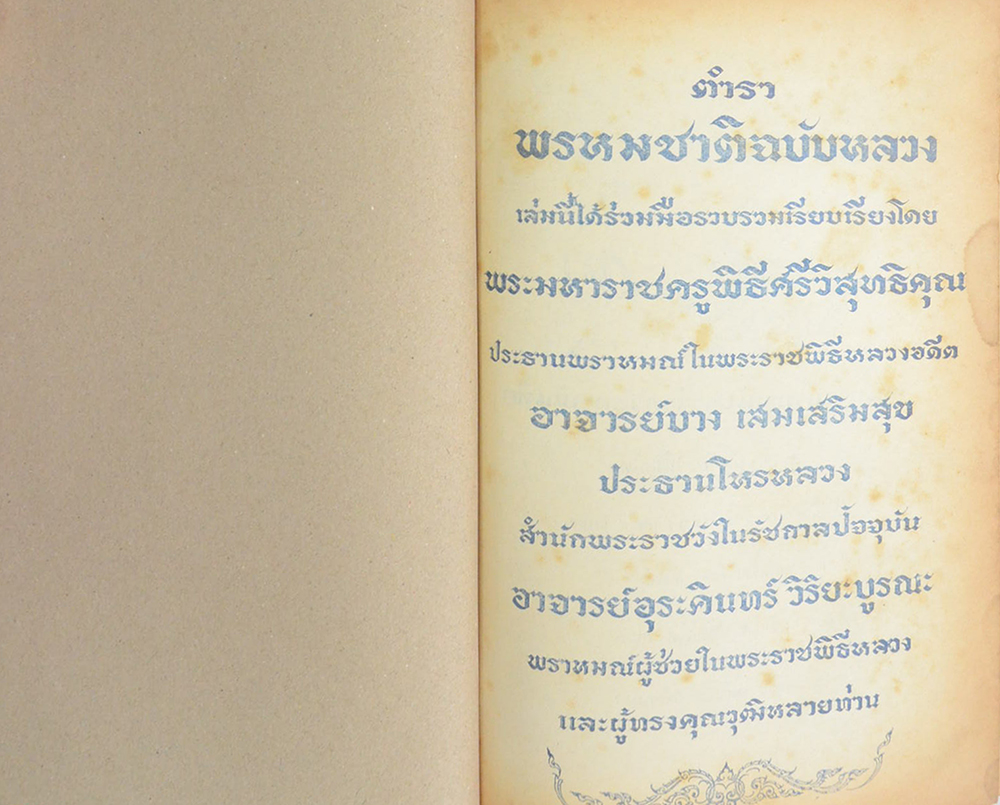 ตำรา
พรหมชาติฉบับหลวง
เล่มนี้ได้ร่วมมือรวบรวมเรียบเรียงโดย
พระมหาราชครูพิธีศรีวิสุทธิคุณ
ประธานพราหมณ์ในพระราชพิธีหลวงอดีต
อาจารย์บาง เสมเสริมสุข
ประธานโหรหลวง
สำนักพระราชวังในรัชกาลปัจจุบัน
อาจารย์อุระคินทร์ วิริยะบูรณะ
พราหมณ์ผู้ช่วยในพระราชพิธีหลวง
และผู้ทรงคุณวุฒิหลายท่าน